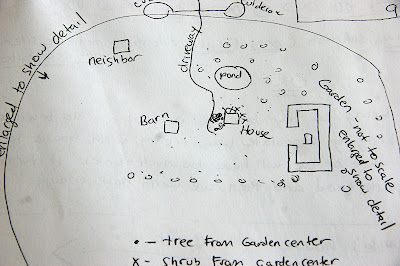 enlarged to show detail
driveway
neighbor
pond
Barn
House
Garden - not to scale
enlarged to
show detail
• - tree From Garden center
x - shrub From garden center